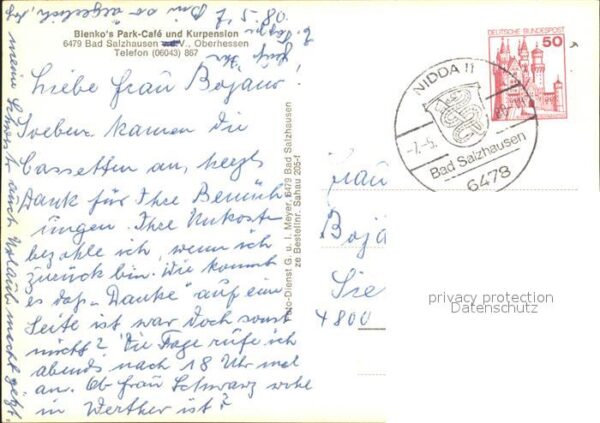 Bienko's Park-Café und Kurpension
6479 Bad Salzhausen V., Oberhessen
Telefon (06043) 867
7.5.80
Liebe Frau Bojani!
Soeben kamen die
Cassetten an, herzl.
Dank für Ihre Bemüh
ungen. Ihre Unkosten
bezahle ich, wenn ich
zurück bin. Wie kommt
es daß "Danke" auf eine
Seite ist war doch sonst
nicht? Die Tage rufe ich
abends nach 18 Uhr mal
an. Ob Frau Schwarz wohl
in Werther ist?
Bin so ärgerlich, daß
meine Schwester auch Urlaub macht jetzt.
Foto-Dienst G. u. I. Meyer, 6479 Bad Salzhausen
ze Bestellnr. Sahau 205-f
DEUTSCHE BUNDESPOST
50
NIDDA 11
-7.-5.
Bad Salzhausen
6478
Frau
Boja
Sie
4800
privacy protection
Datenschutz